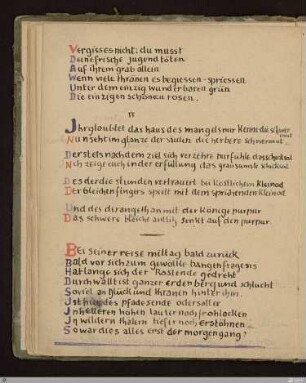 Vergiss es nicht: du musst
Deine frische jugend töten
Auf ihrem grab allein
Wenn viele thränen es begiessen - spriessen
Unter dem einzig wunderbaren grün
Die einzigen schönen rosen.
II
Ihr glaubtet das haus des mangels nur kenne die schwermut
Nun seht im glanze der säulen die herbere schwermut
Der stets nach dem ziel sich verzehre nur fühle das schicksal
Ich zeige euch in der erfüllung das grausamste schicksal
Des der die stunden vertrauert bei köstlichem kleinod
Der bleichen fingers spielt mit dem sprühenden kleinod
Und des der angethan mit der könige purpur
Das schwere bleiche antlitz senkt auf den purpur.
Bei seiner reise mittag bald zurück
Bald vor sich zum gewölle bangen fragens
Hat lange sich der Rastende gedreht
Durchwallt ist ganzer erden berg und schlucht
Soviel an glück und thränen hinter ihm
Ist hier des pfades ende oder soll er
In helleren höhen lauter noch frohlocken
In wildern thälern tiefer noch erstöhnen..
So war dies alles erst der morgengang?